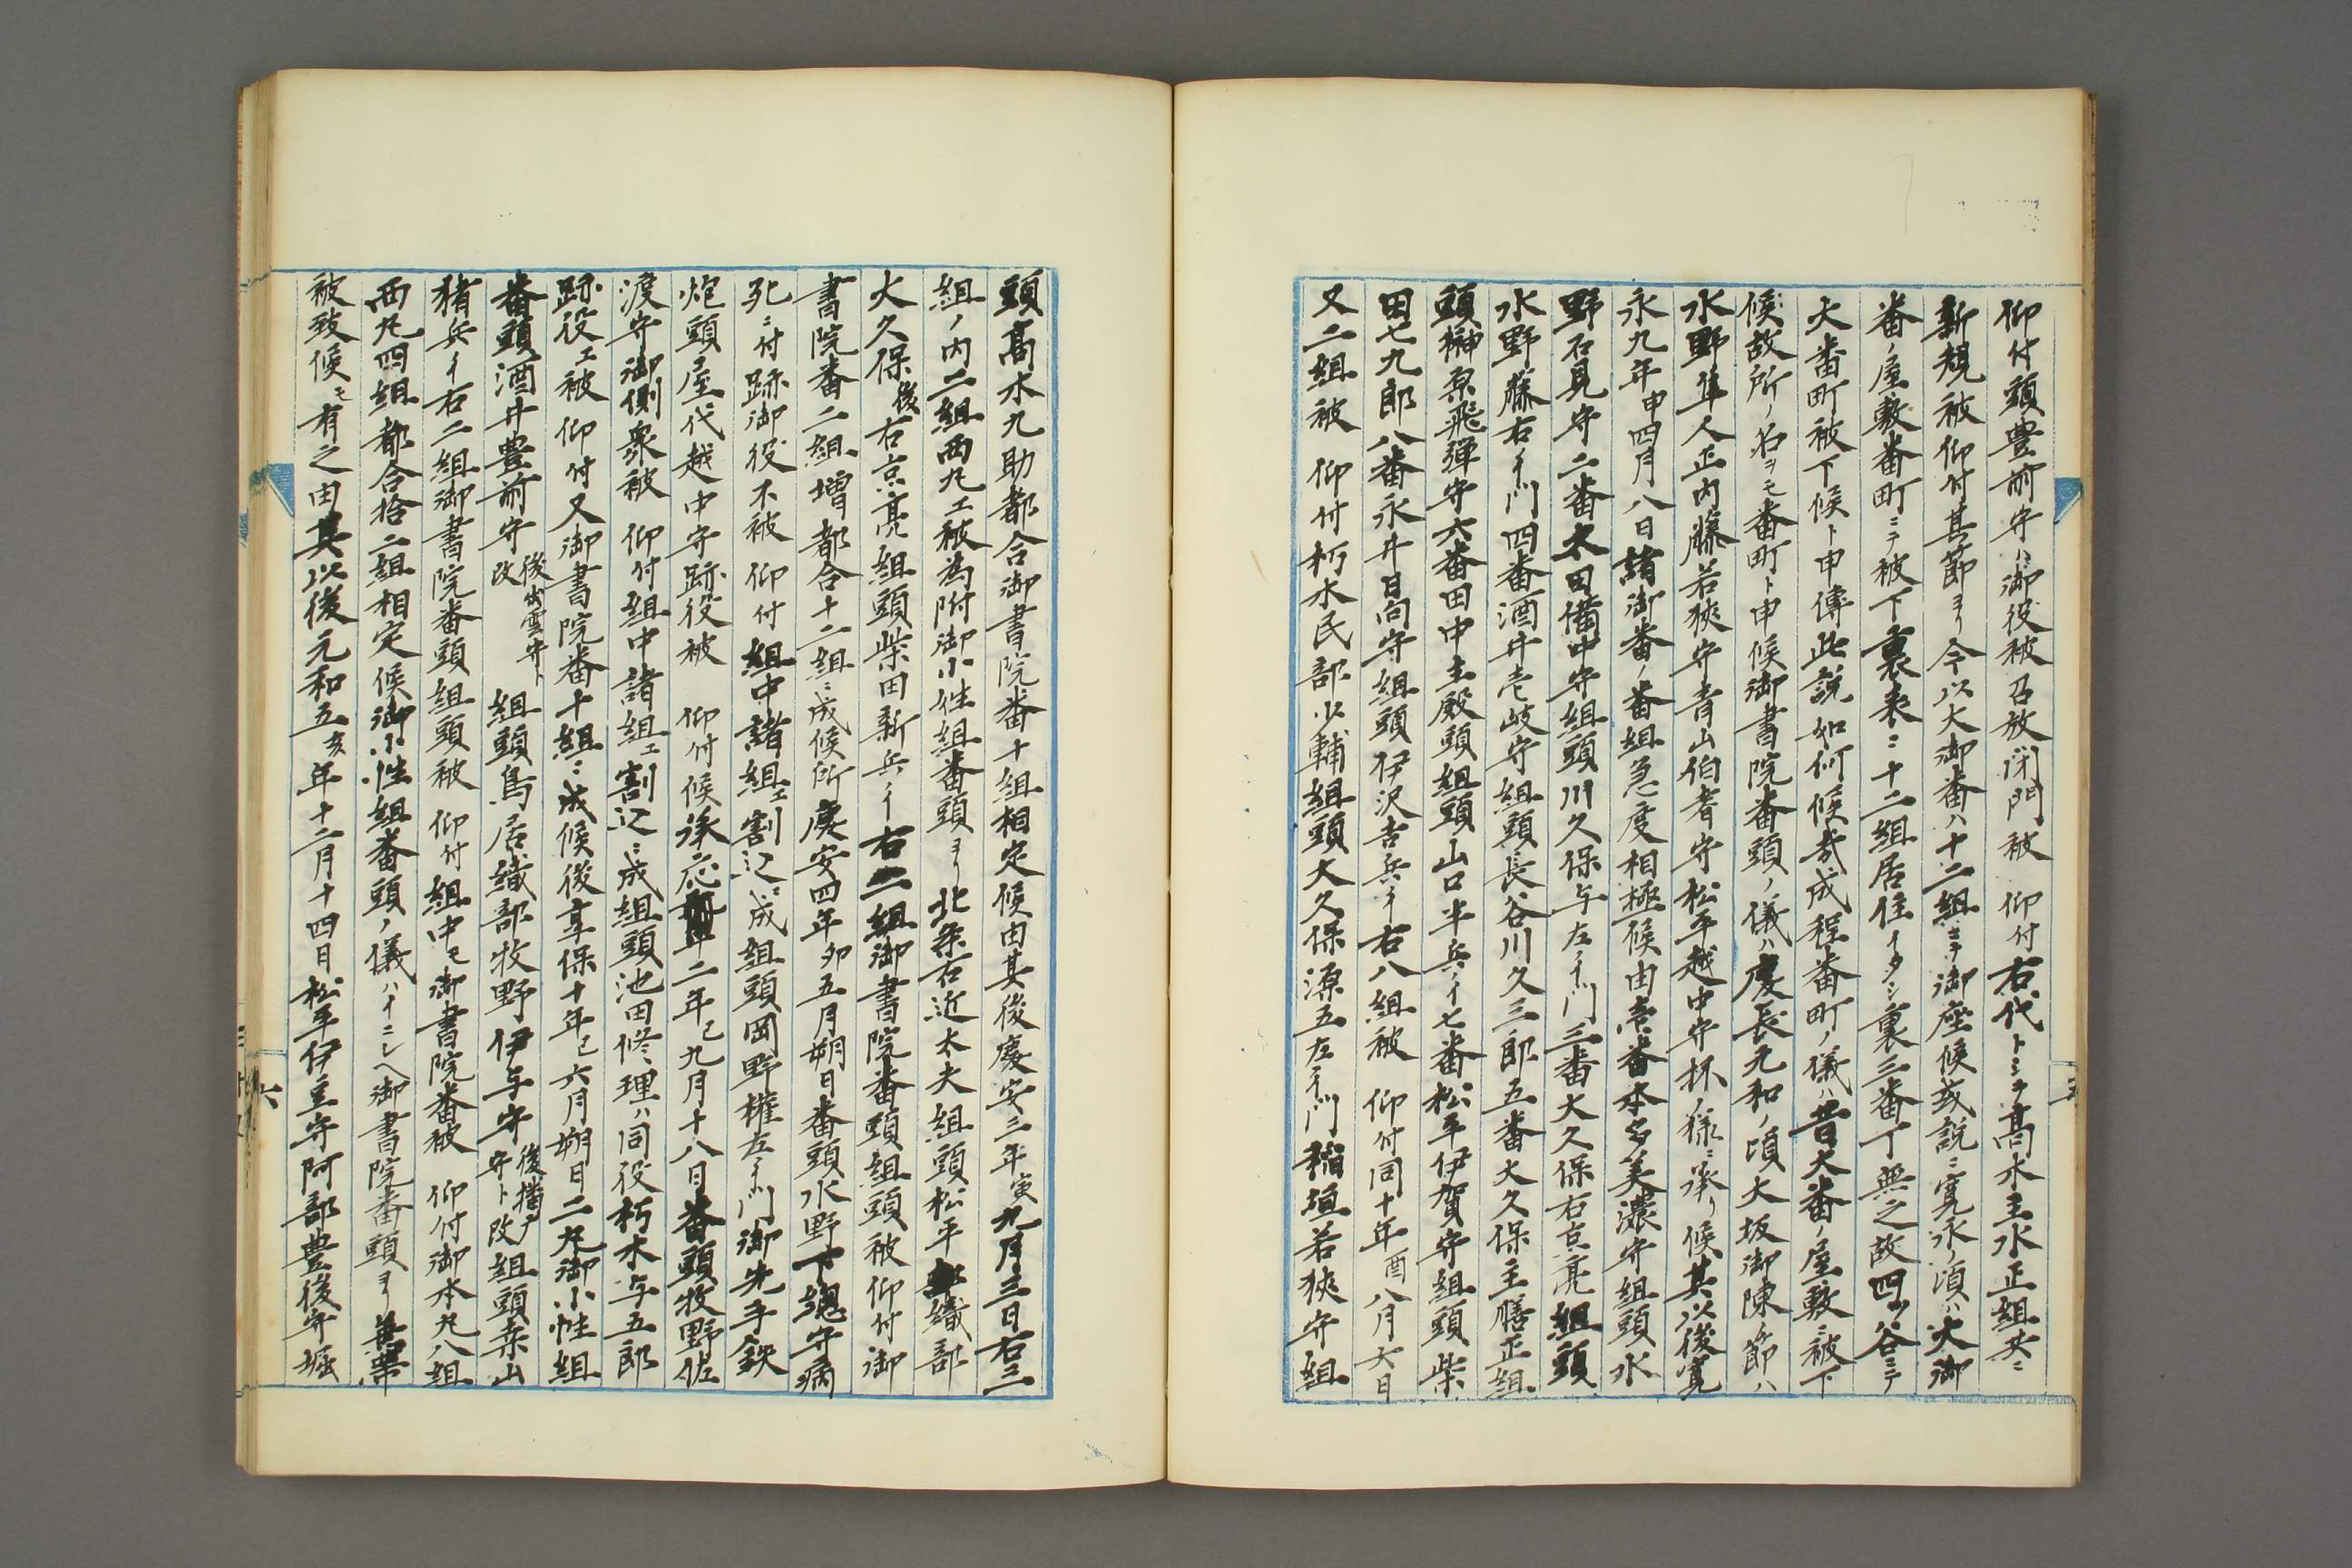 仰付頭豊前守ハ御役被召放閉門被　仰付右代トシテ高木主水正組共ニ
新規被仰付其節ヨリ今以大御番ハ十二組ニテ御座候或説ニ寛永ノ頃ハ大御
番ノ屋敷番町ニテ被下裏表ニ十二組居住イタシ裏三番丁無之故四ツ谷ニテ
大番町被下候ト申傳此説如何候哉成程番町ノ儀ハ昔大番ノ屋敷ニ被下
候故所ノ名ヲモ番町ト申候御書院番頭ノ儀ハ慶長元和ノ頃大坂御陳ノ節ハ
水野隼人正内藤若狹守青山伯耆守松平越中守杯ノ様ニ承リ候其以後寛
永九年申四月八日諸御番ノ番組急度相極候由壱番本多美濃守組頭水
野石見守二番太田備中守組頭川久保与左衛門三番大久保右京亮組頭
水野藤右衛門四番酒井壱岐守組頭長谷川久三郎五番大久保主膳正組
頭榊原飛彈守六番田中主殿頭組頭山口半兵衛七番松平伊賀守組頭柴
田七九郎八番永井日向守組頭伊沢吉兵衛右八組被　仰付同十年酉八月六日
又二組被　仰付朽木民部少輔組頭大久保源五左衛門稲垣若狹守組
頭高木九助都合御書院番十組相定候由其後慶安三年寅九月三日右三
組ノ内二組西丸エ被為附御小性組番頭ヨリ北条右近太夫組頭松平織部
大久保後右京亮組頭柴田新兵衛右二組御書院番頭組頭被仰付御
書院番二組増都合十二組ニ成候所慶安四年卯五月朔日番頭水野下総守病
死ニ付跡御役不被　仰付組中諸組エ割込ニ成組頭岡野権左衛門御先手鉄
炮頭屋代越中守跡役被　仰付候承応二年巳九月十八日番頭牧野佐
渡守御側衆被　仰付組中諸組エ割込ニ成組頭池田修理ハ同役朽木与五郎
跡役エ被　仰付又御書院番十組ニ成候後享保十年巳六月朔日二丸御小性組
番頭酒井豊前守後出雲守ト改組頭鳥居織部牧野伊与守後播磨守ト改組頭桒山
猪兵衛右二組御書院番頭組頭被　仰付組中モ御書院番被　仰付御本丸八組
西丸四組都合拾二組相定候御小性組番頭ノ儀ハイニシヘ御書院番頭ヨリ兼帯
被致候モ有之由其以後元和五亥年十二月十四日松平伊豆守阿部豊後守堀
六